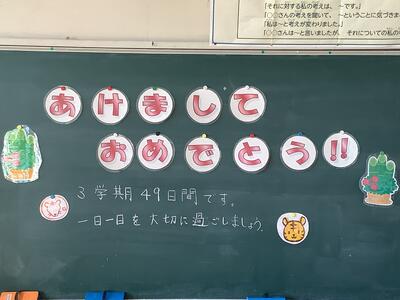 「それに対する私の考えは、　～です。」
「○○さんの考えを聞いて、　～ということに気づきま
「私は～と考えが変わりました。」
「○○さんは～と言いましたが、　それについての私の
あけまして
おめでとう!!
3学期49日間です。
一日一日を大切に過ごしましょう。